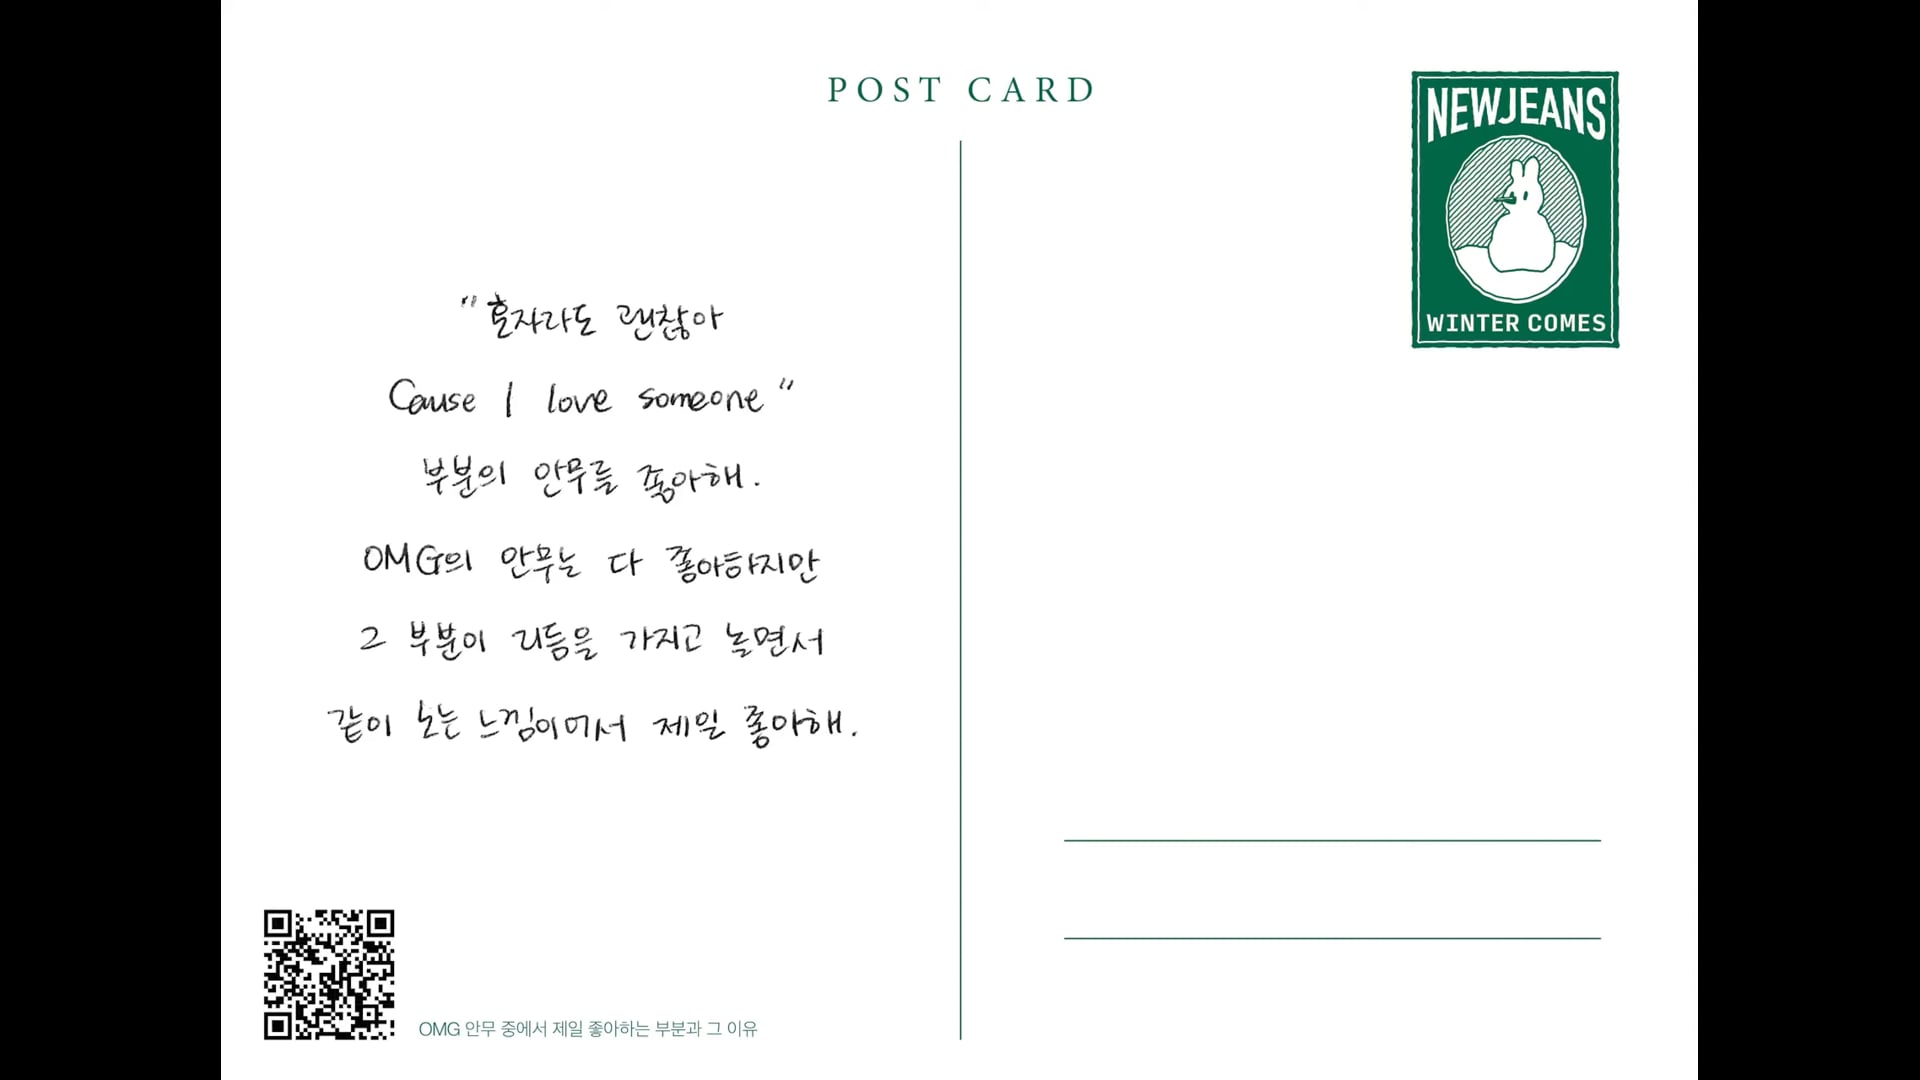 POST CARD
NEWJEANS
WINTER COMES
"혼자라도 괜찮아
Cause I love someone"
부분의 안무를 좋아해.
OMG의 안무는 다 좋아하지만
그 부분이 리듬을 가지고 놀면서
같이 노는 느낌이어서 제일 좋아해.
OMG 안무 중에서 제일 좋아하는 부분과 그 이유